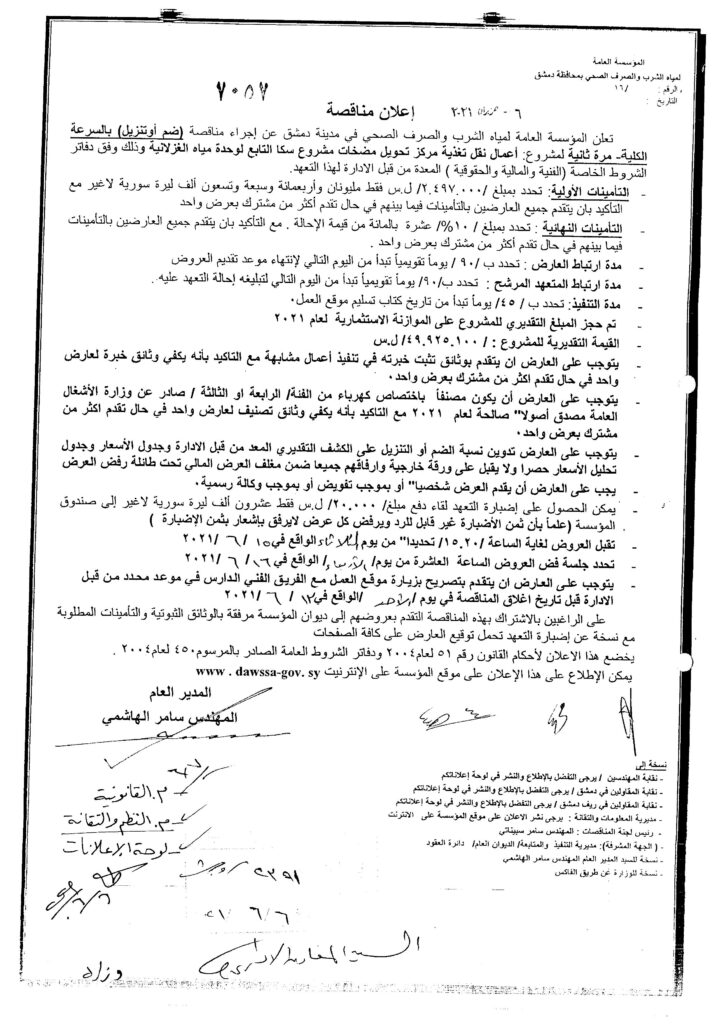 المؤسسة العامة
لمياه الشرب والصرف الصحي بمحافظة دمشق
الرقم : /١٦
التاريخ :
٧٠٥٧
٦ - حزيران ٢٠٢١
إعلان مناقصة
تعلن المؤسسة العامة لمياه الشرب والصرف الصحي في مدينة دمشق عن إجراء مناقصة (ضم أوتنزيل) بالسرعة
الكلية- مرة ثانية لمشروع: أعمال نقل تغذية مركز تحويل مضخات مشروع سكا التابع لوحدة مياه الغزلانية وذلك وفق دفاتر
الشروط الخاصة (الفنية والمالية والحقوقية ) المعدة من قبل الادارة لهذا التعهد.
- التأمينات الأولية: تحدد بمبلغ /٢.٤٩٧.٠٠٠/ ل.س فقط مليونان وأربعمائة وسبعة وتسعون ألف ليرة سورية لاغير مع
التأكيد بان يتقدم جميع العارضين بالتأمينات فيما بينهم في حال تقدم أكثر من مشترك بعرض واحد
- التأمينات النهائية : تحدد بمبلغ /١٠%/ عشرة بالمائة من قيمة الإحالة . مع التأكيد بان يتقدم جميع العارضين بالتأمينات
فيما بينهم في حال تقدم أكثر من مشترك بعرض واحد .
- مدة ارتباط العارض : تحدد ب/ ٩٠/ يوماً تقويمياً تبدأ من اليوم التالي لإنتهاء موعد تقديم العروض
- مدة ارتباط المتعهد المرشح : تحدد ب/٩٠/ يوماً تقويمياً تبدأ من اليوم التالي لتبليغه إحالة التعهد عليه .
- مدة التنفيذ: تحدد ب / ٤٥/ يوماً تبدأ من تاريخ كتاب تسليم موقع العمل.
- تم حجز المبلغ التقديري للمشروع على الموازنة الاستثمارية لعام ٢٠٢١
- القيمة التقديرية للمشروع : /٤٩.٩٢٥.١٠٠/ ل.س
- يتوجب على العارض ان يتقدم بوثائق تثبت خبرته في تنفيذ أعمال مشابهة مع التاكيد بأنه يكفي وثائق خبرة لعارض
واحد في حال تقدم اكثر من مشترك بعرض واحد.
- يتوجب على العارض أن يكون مصنفاً باختصاص كهرباء من الفئة/ الرابعة او الثالثة / صادر عن وزارة الأشغال
العامة مصدق أصولا" صالحة لعام ٢٠٢١ مع التاكيد بأنه يكفي وثائق تصنيف لعارض واحد في حال تقدم اكثر من
مشترك بعرض واحد.
- يتوجب على العارض تدوين نسبة الضم أو التنزيل على الكشف التقديري المعد من قبل الادارة وجدول الأسعار وجدول
تحليل الأسعار حصرا ولا يقبل على ورقة خارجية وارفاقهم جميعا ضمن مغلف العرض المالي تحت طائلة رفض العرض
- يجب على العارض أن يقدم العرض شخصيا" أو بموجب تفويض أو بموجب وكالة رسمية.
- يمكن الحصول على إضبارة التعهد لقاء دفع مبلغ/ ٢٠.٠٠٠/ ل.س فقط عشرون ألف ليرة سورية لاغير إلى صندوق
المؤسسة (علماً بأن ثمن الأضبارة غير قابل للرد ويرفض كل عرض لايرفق بإشعار بثمن الإضبارة )
- تقبل العروض لغاية الساعة /١٥.٢٠/ تحديدا" من يوم /الثلاثاء/ الواقع في ١٥ / ٦ / ٢٠٢١
- تحدد جلسة فض العروض الساعة العاشرة من يوم /الأربعاء/ الواقع في ١٦ / ٦ / ٢٠٢١
- يتوجب على العارض ان يتقدم بتصريح بزيارة موقع العمل مع الفريق الفني الدارس في موعد محدد من قبل
الادارة قبل تاريخ اغلاق المناقصة في يوم /الأحد/ الواقع في ١٣ / ٦ / ٢٠٢١
على الراغبين بالاشتراك بهذه المناقصة التقدم بعروضهم إلى ديوان المؤسسة مرفقة بالوثائق الثبوتية والتأمينات المطلوبة
مع نسخة عن إضبارة التعهد تحمل توقيع العارض على كافة الصفحات
يخضع هذا الاعلان لأحكام القانون رقم ٥١ لعام٢٠٠٤ ودفاتر الشروط العامة الصادر بالمرسوم٤٥٠ لعام٢٠٠٤ .
يمكن الإطلاع على هذا الإعلان على موقع المؤسسة على الإنترنيت www . dawssa-gov. sy
المدير العام
المهندس سامر الهاشمي
نسخة إلى
- نقابة المهندسين / يرجى التفضل بالإطلاع والنشر في لوحة إعلاناتكم
- نقابة المقاولين في دمشق / يرجى التفضل بالإطلاع والنشر في لوحة إعلاناتكم
- نقابة المقاولين في ريف دمشق / يرجى التفضل بالإطلاع والنشر في لوحة إعلاناتكم
- مديرية المعلومات والتقانة : يرجى نشر الاعلان على موقع المؤسسة على الانترنت
- رئيس لجنة المناقصات : المهندس سامر سبيناتي
- ( الجهة المشرفة): مديرية التنفيذ والمتابعة/ الديوان العام/ دائرة العقود
- نسخة للسيد المدير العام المهندس سامر الهاشمي
- نسخة للوزارة عن طريق الفاكس
م. القانونية
م. النظم والتقانة
لوحة الإعلانات
٢٣٩١
٦/٦/٢١